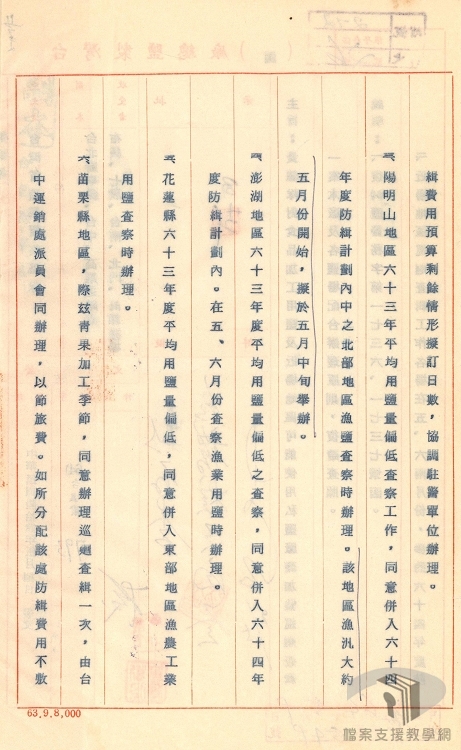 緝費用預算剩餘情形擬訂日數，協調駐警單位辦理。
三、陽明山地區六十三年平均用鹽量偏低查察工作，同意併入六十四
年度防緝計劃內中之北部地區漁鹽查察時辦理。該地區漁汎大約
五月份開始，擬於五月中旬舉辦。
四、澎湖地區六十三年度平均用鹽量偏低之查察，同意併入六十四年
度防緝計劃內。在五、六月份查察漁業用鹽時辦理。
五、花蓮縣六十三年度平均用鹽量偏低，同意併入東部地區漁農工業
用鹽查察時辦理。
六、苗栗縣地區，際茲青果加工季節，同意辦理巡廻查緝一次，由台
中運銷處派員會同辦理，以節旅費。如所分配該處防緝費用不敷
63.9.8,000
檔案支援教學網